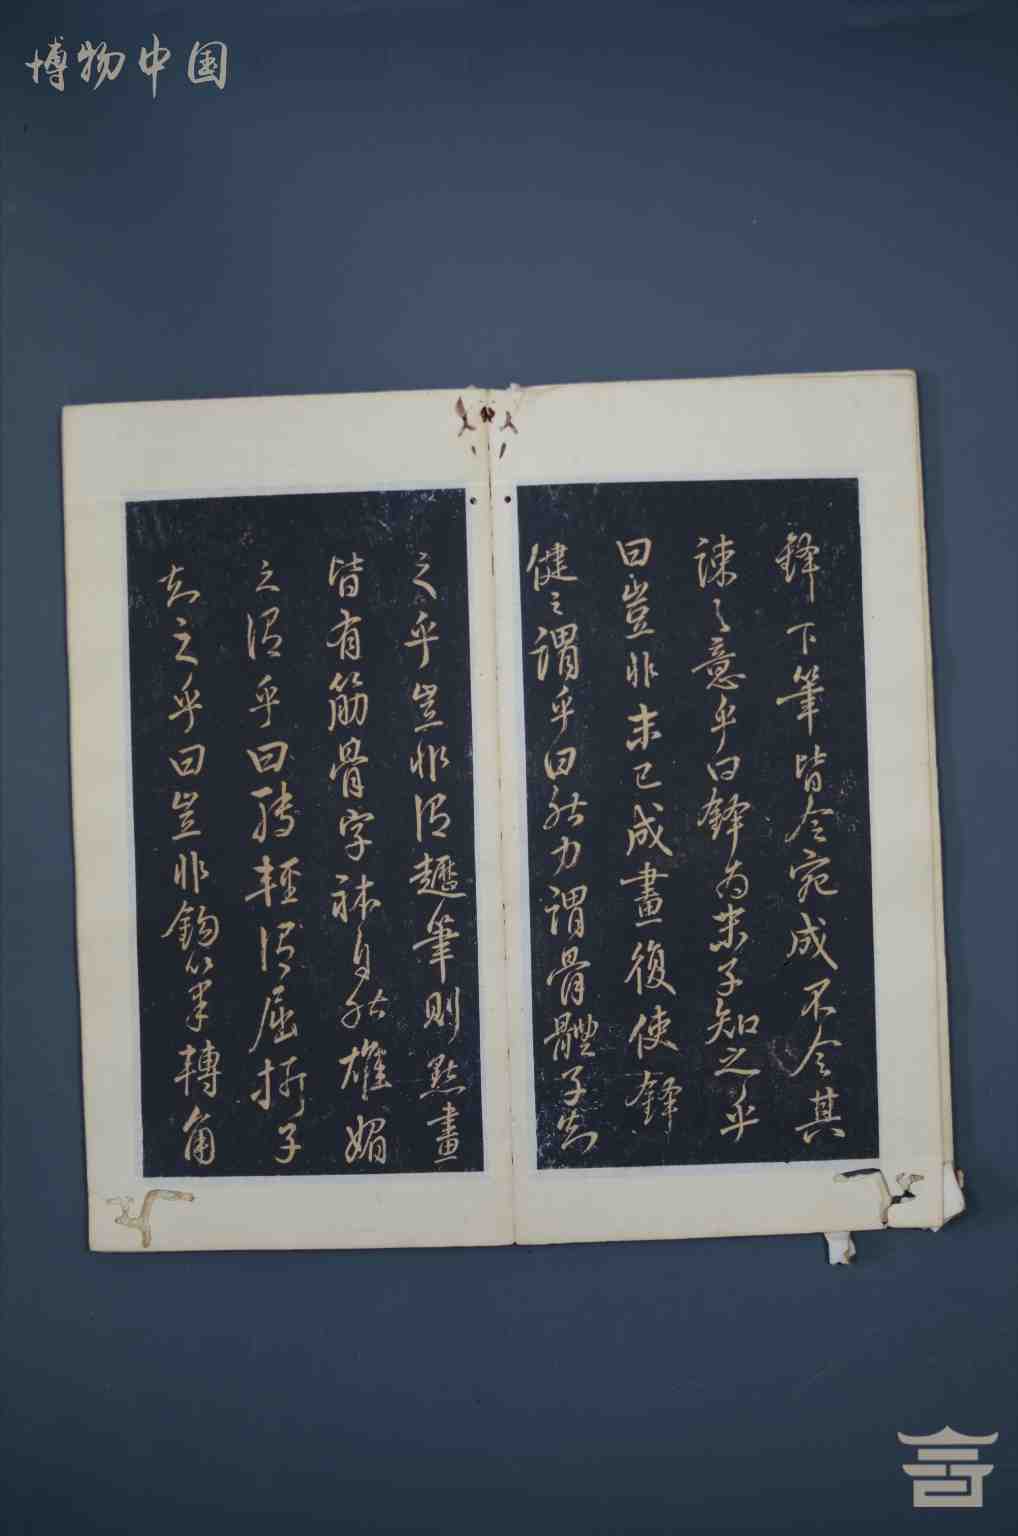 博物中国
鋒下筆皆令宛成不令其
疎之意乎曰鋒為末子知之乎
曰豈非末已成畫復使鋒
健之謂乎曰然力謂骨體子知
之乎豈非謂趯筆則點畫
皆有筋骨字體自然雄媚
之謂乎曰轉輕謂屈折子
知之乎曰豈非鉤筆轉角